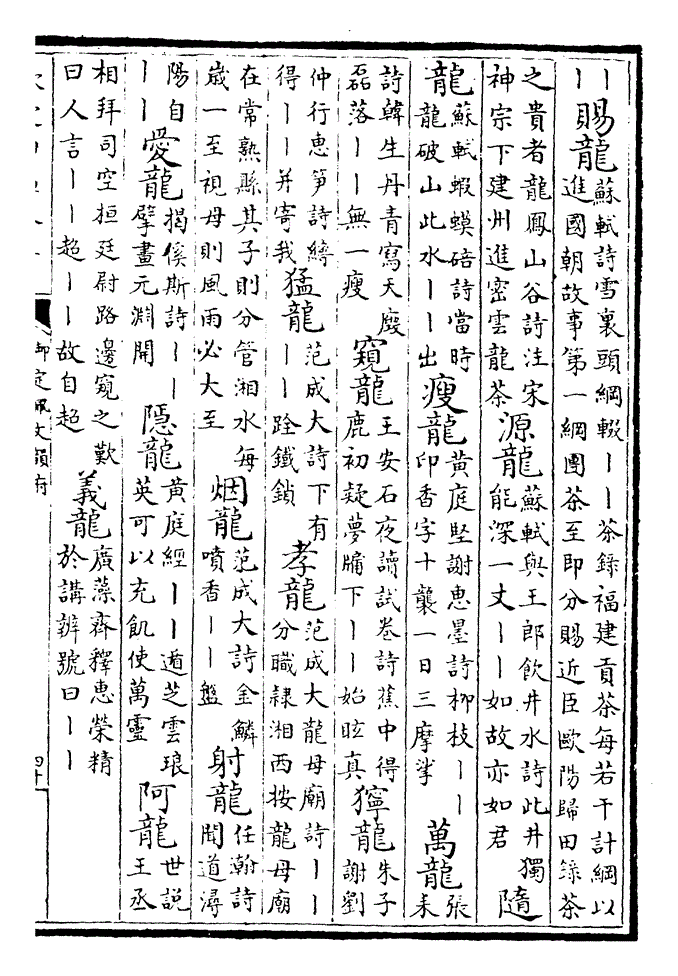 丨丨賜龍蘇軾詩雪裏頭綱輟丨丨茶錄福建貢茶每若干計綱以進國朝故事第一綱團茶至即分賜近臣歐陽歸田錄茶
之貴者龍鳳山谷詩注宋神宗下建州進密雲龍茶源龍蘇軾與王郎飲井水詩此井獨能深一丈丨丨如故亦如君隨
龍蘇軾蝦蟆碚詩當時龍破山此水丨丨出瘦龍黃庭堅謝惠墨詩柳枝丨丨印香字十襲一日三摩挲萬龍張耒
詩韓生丹青寫天廄磊落丨丨無一瘦窺龍王安石夜讀試卷詩蕉中得鹿初疑夢牖下丨丨始眩真獰龍朱子謝劉
仲行惠筍詩縛得丨丨并寄我猛龍范成大詩下有丨丨跧鐵鎖孝龍范成大龍母廟詩丨丨分職隸湘西按龍母廟
在常熟縣其子則分管湘水每歲一至視母則風雨必大至烟龍范成大詩金鱗噴香丨丨盤射龍任翰詩聞道潯
陽自丨丨愛龍揭傒斯詩丨丨擘畫元淵開隱龍黃庭經丨丨遁芝雲琅英可以充飢使萬靈阿龍世説王丞
相拜司空桓廷尉路邊窺之歎曰人言丨丨超丨丨故自超義龍廣藻齊釋惠榮精於講辨號曰丨丨
御定佩文韻府
四十